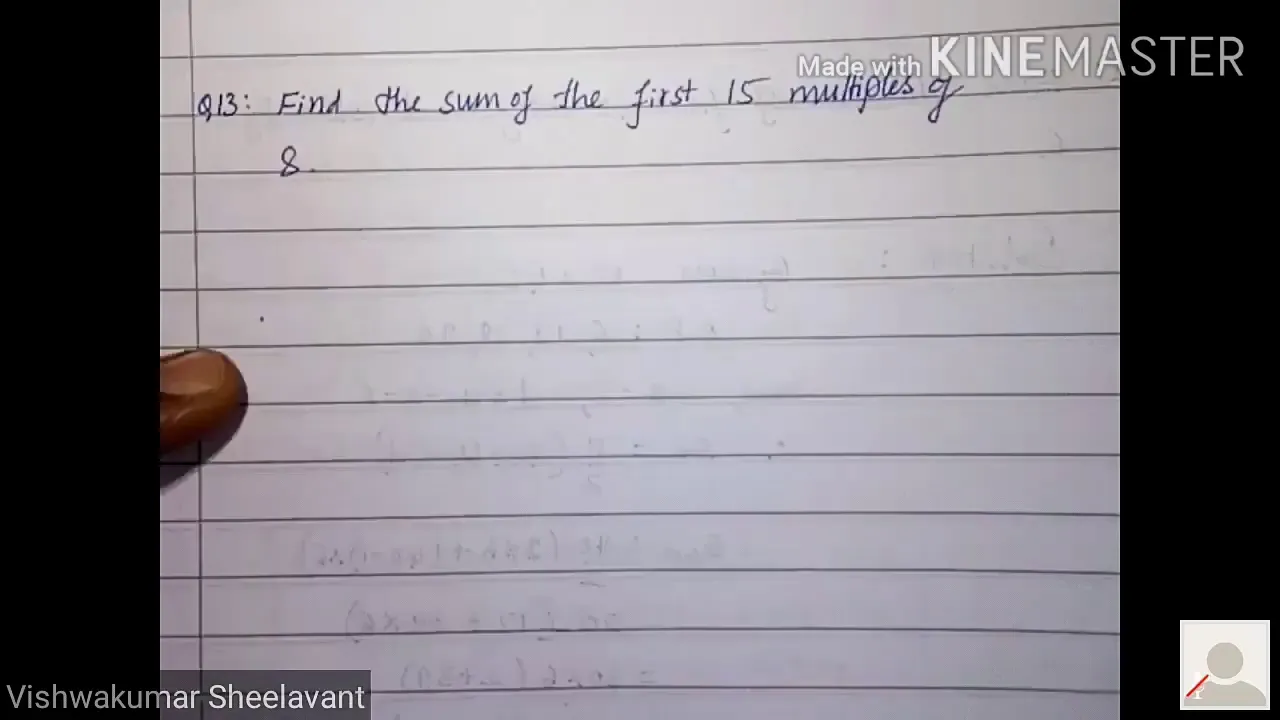 Made with KINEMASTER
Q13: Find the sum of the first 15 multiples of
8.
Vishwakumar Sheelavant